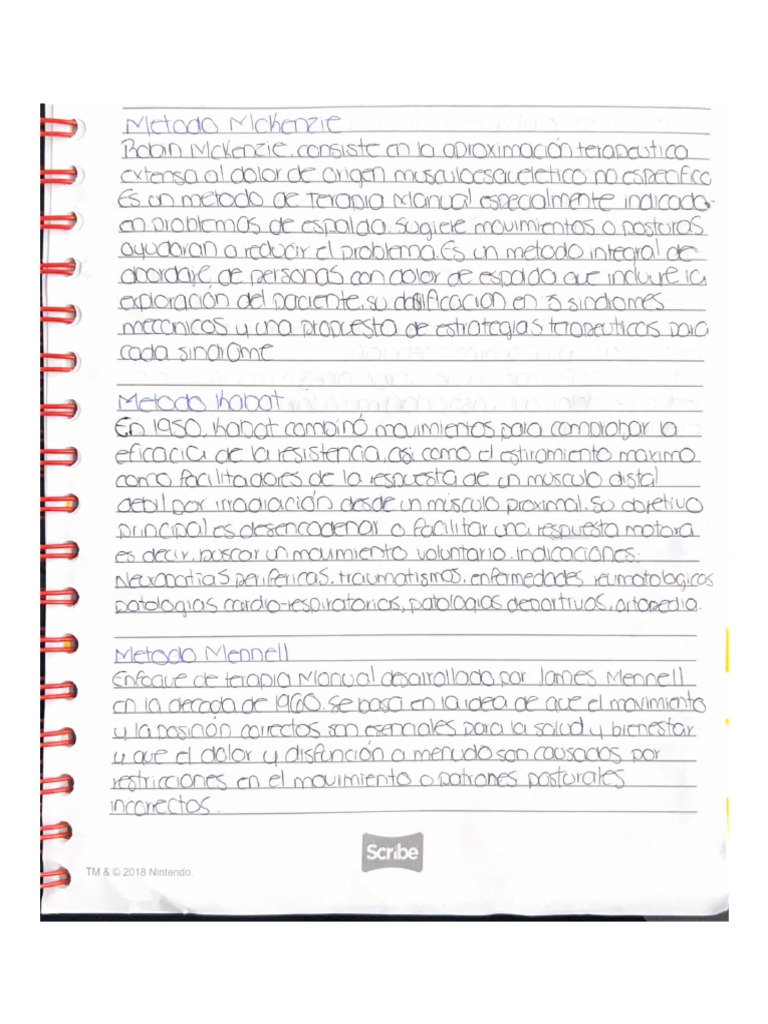 Metodo Mckenzie
Robin Mckenzie, consiste en la aproximación terapeutica
extensa al dolor de origen musculoesqueletico no especifico
Es un metodo de terapia Manual especialmente indicada
en problemas de espalda. sugiere movimientos o posturas
ayudaran a reducir el problema. Es un metodo integral de
abordaje, de personas con dolor de espalda que incluye la
exploración del paciente, su clasificacion en 3 sindromes
mecanicos y una propuesta de estrategias terapeuticas para
cada sindrome
Metodo Kabat
En 1950, Kabat combinó movimientos para comprobar la
eficacia de la resistencia, asi como el estiramiento maximo
como facilitadores de la respuesta de un musculo distal
debil por irradiación desde un músculo proximal. Su objetivo
principal es desencadenar o facilitar una respuesta motora
es decir, buscar un movimiento voluntario. indicaciones:
Neuropatias perifericas, traumatismos, enfermedades reumatologicas
patologias cardio-respiratorias, patologias deportivas, ortopedia.
Metodo Mennell
Enfoque de terapia Manual desarrollado por James Mennell
en la decada de 1960. se basa en la idea de que el movimiento
y la posición correctos son esenciales para la salud y bienestar
y que el dolor y disfunción a menudo son causados por
restricciones en el movimiento o patrones posturales
incorectos.
Scribe
TM & © 2018 Nintendo.